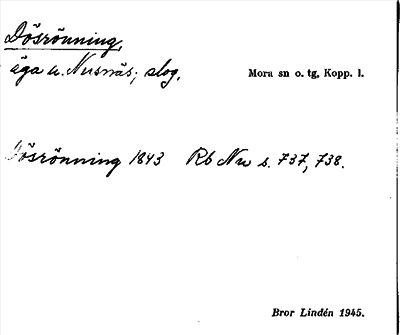 Dösrönning,
äga u. Nusnäs; slog. Mora sn o. tg, Kopp. l.
Dösrönning 1843 Rb Nu s. 737, 738.
Bror Lindén 1945.